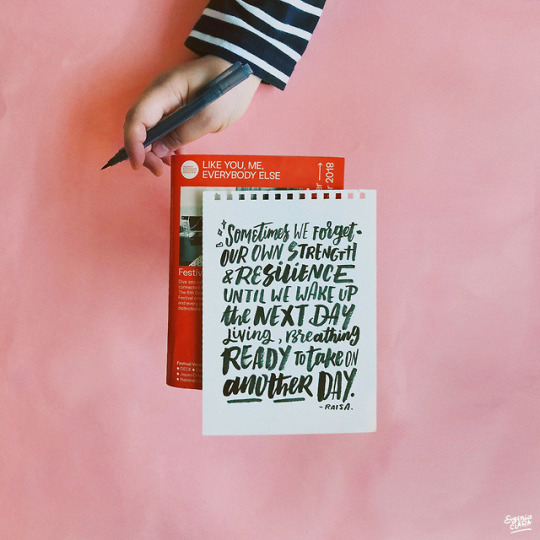 LIKE YOU, ME,
EVERYBODY ELSE
2018
Festiv
Sometimes WE forget
OUR OWN STRENGTH
& RESILIENCE
UNTIL WE WAKE UP
the NEXT DAY
Living, Breathing
READY to take ON
another DAY.
- RAISA.
Eugenia
CLARA